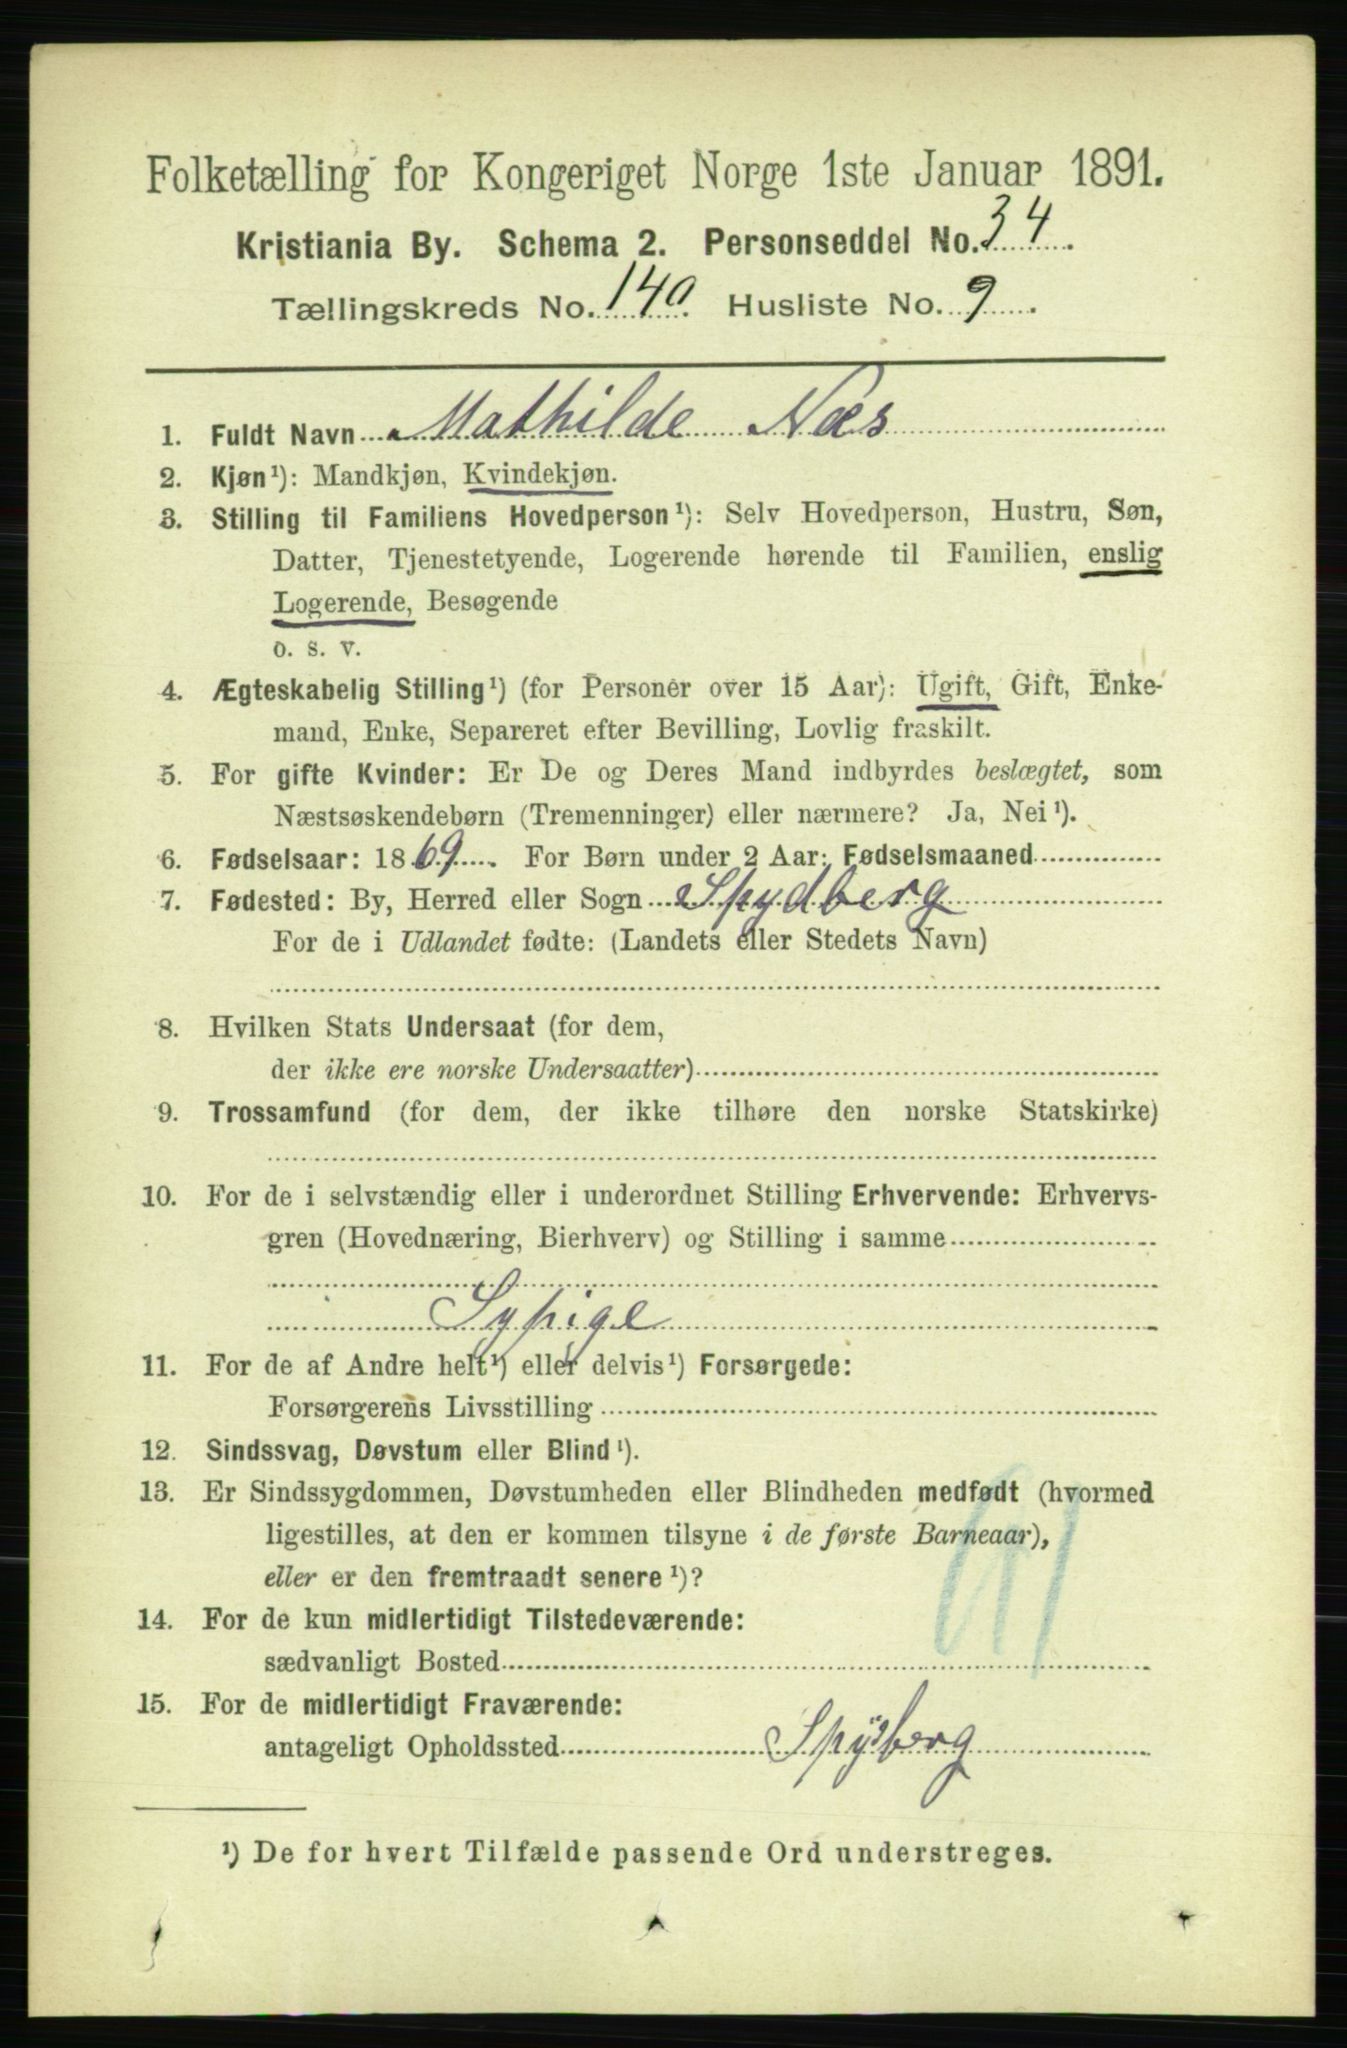 Folketælling for Kongeriget Norge 1ste Januar 1891.
Kristiania By. Schema 2. Personseddel No. 34.
Tællingskreds No. 140. Husliste No. 9.
1. Fuldt Navn Mathilde Næs
2. Kjøn¹): Mandkjøn, Kvindekjøn.
3. Stilling til Familiens Hovedperson¹): Selv Hovedperson, Hustru, Søn,
Datter, Tjenestetyende, Logerende hørende til Familien, enslig
Logerende, Besøgende
o. s. v.
4. Ægteskabelig Stilling¹) (for Personer over 15 Aar): Ugift, Gift, Enke-
mand, Enke, Separeret efter Bevilling, Lovlig fraskilt.
5. For gifte Kvinder: Er De og Deres Mand indbyrdes beslægtet, som
Næstsøskendebørn (Tremenninger) eller nærmere? Ja, Nei¹).
6. Fødselsaar: 1869. For Børn under 2 Aar: Fødselsmaaned
7. Fødested: By, Herred eller Sogn Spydberg
For de i Udlandet fødte: (Landets eller Stedets Navn)
8. Hvilken Stats Undersaat (for dem,
der ikke ere norske Undersaatter)
9. Trossamfund (for dem, der ikke tilhøre den norske Statskirke)
10. For de i selvstændig eller i underordnet Stilling Erhvervende: Erhvervs-
gren (Hovednæring, Bierhverv) og Stilling i samme
Sypige
11. For de af Andre helt¹) eller delvis¹) Forsørgede:
Forsørgerens Livsstilling
12. Sindssvag, Døvstum eller Blind¹).
13. Er Sindssygdommen, Døvstumheden eller Blindheden medfødt (hvormed
ligestilles, at den er kommen tilsyne i de første Barneaar),
eller er den fremtraadt senere¹)?
14. For de kun midlertidigt Tilstedeværende:
sædvanligt Bosted
15. For de midlertidigt Fraværende:
antageligt Opholdssted
¹) De for hvert Tilfælde passende Ord understreges.